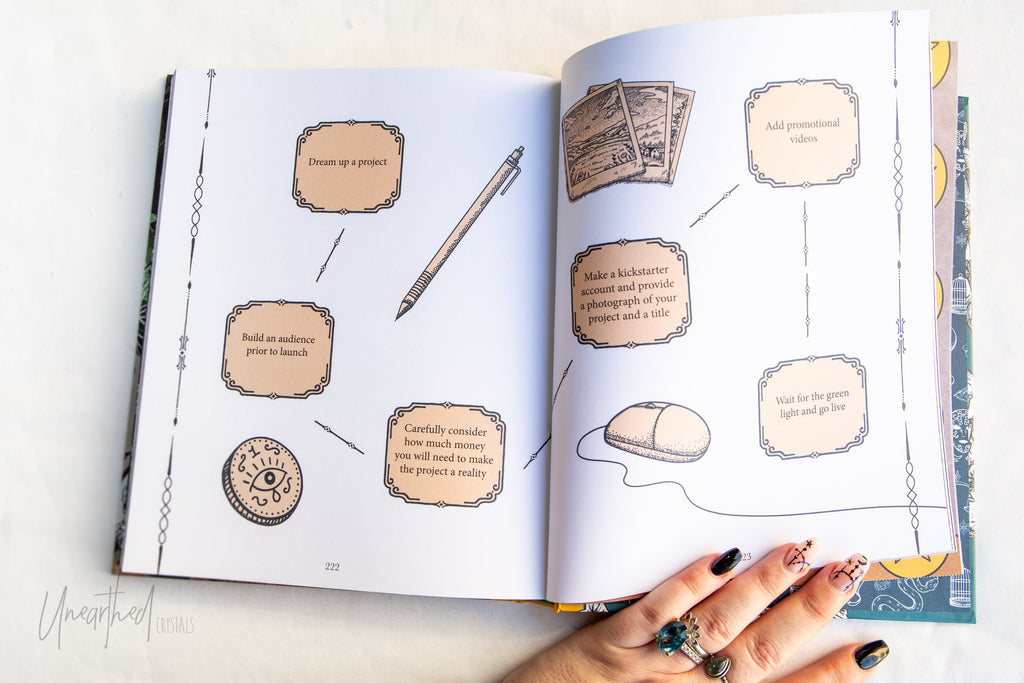 Dream up a project
Build an audience
prior to launch
Carefully consider
how much money
you will need to make
the project a reality
1
222
Make a kickstarter
account and provide
a photograph of your
project and a title
Add promotional
videos
Wait for the green
light and go live
23
Unearthed
CRYSTALS